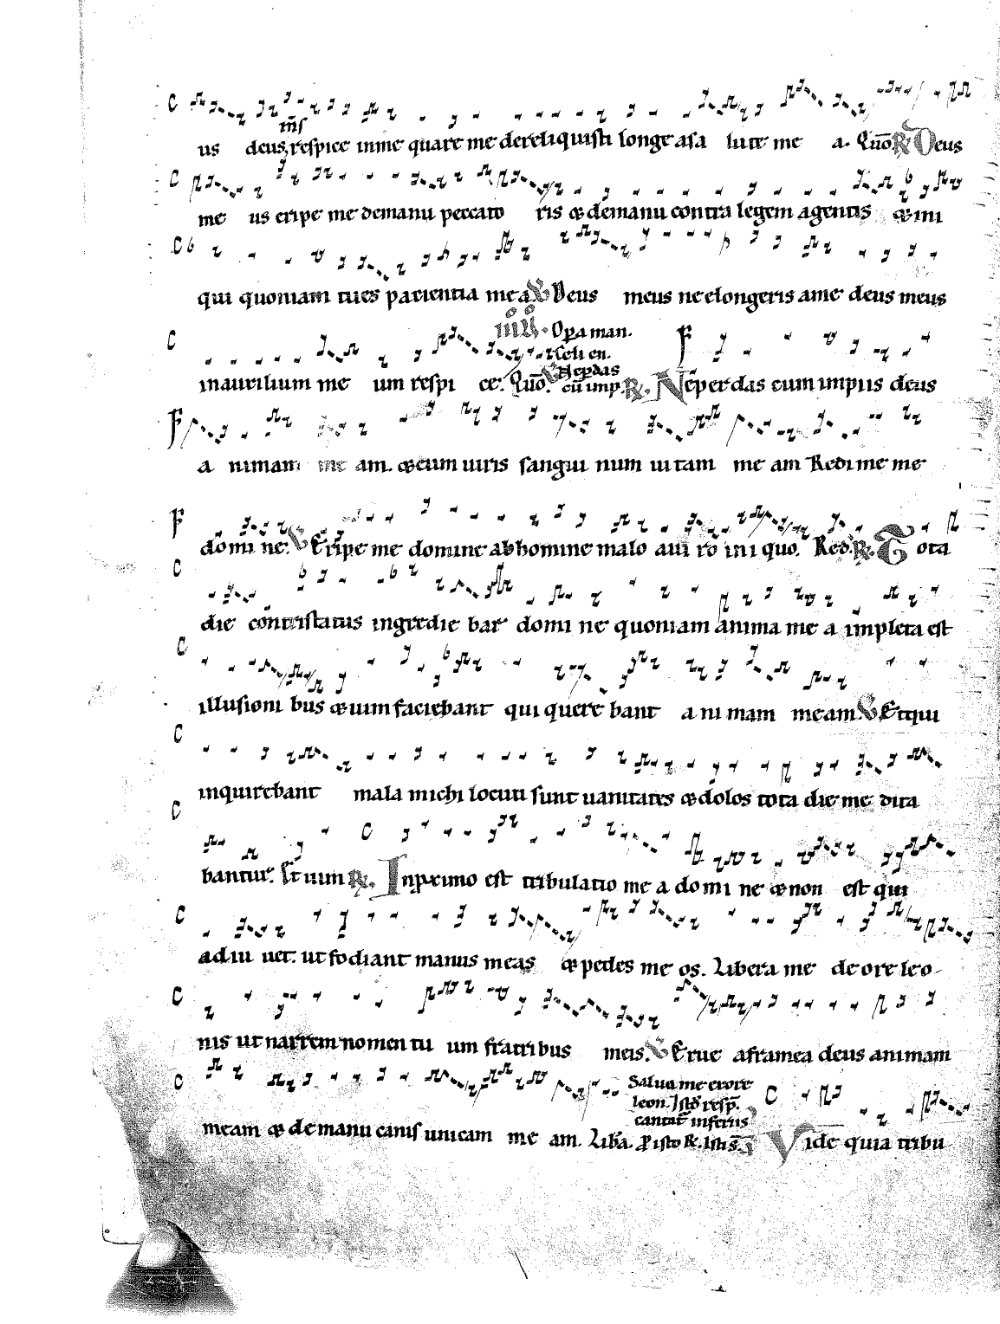 us deus, respice in me quare me dereliquisti longe a sa lute me a. Quō R Deus
me us eripe me demanu peccato ris & demanu contra legem agentis & ini
qui quoniam tu es pacientia mea V Deus meus ne elongeris a me deus meus
Opa man.
inauxilium me um respi ce. Quō. Ne pdas cū imp. R. Ne perdas cum impiis deus
a nimam me am. & cum uiris sangui num uitam me am Redi me me
domi ne. V Eripe me domine abhomine malo a ui ro ini quo. Red. R. Tota
die contristatus ingredie bar domi ne quoniam anima me a impleta est
illusioni bus & uim faciebant qui quere bant a ni mam meam. V Et qui
inquirebant mala michi locuti sunt uanitates & dolos tota die me dita
bantur. Et uim R. Inproximo est tribulatio me a do mi ne & non est qui
ad iu uet. ut fodiant manus meas & pedes me os. Libera me de ore leo
nis ut narrem nomen tu um fratribus meis. V Erue aframea deus animam
Salua me exore
leon. Istđ resp̄.
cantat̄ inferiis
meam & de manu canis unicam me am. Libā. p isto R. Vide quia tribu